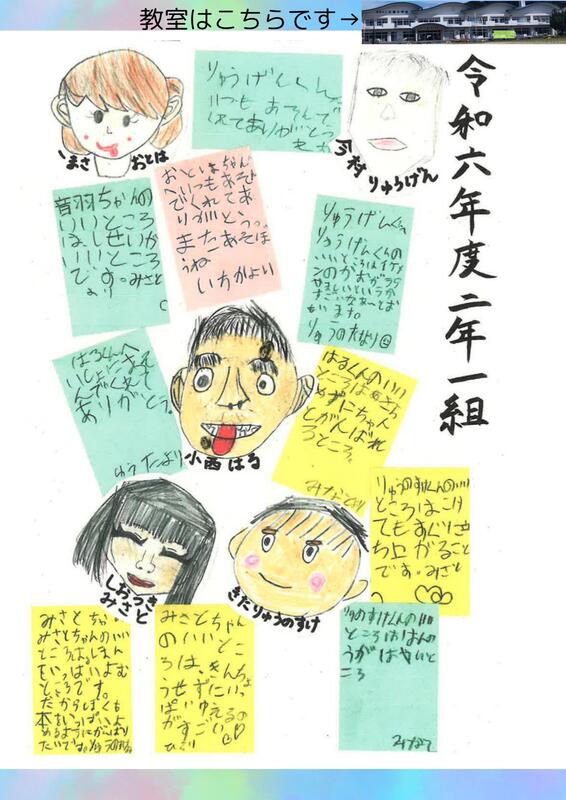 教室はこちらです→
令和六年度二年一組
こまさ おとは
りゅうげんくん
いつも あそんで
くれてありがとう
今村りゅうげん
音羽ちゃんの
いいところ
はしせいが
いいところ
です。みさと
より
おとはちゃん
いつもあそん
でくれてあ
りがとう。
またあそぼ
うね
いちかより
りゅうげんくんの
いいところはイケメ
ンのかおが
すごいなぁーとお
もいます。
はるくんへ
いっしょにあそ
んでくれて
ありがとう。
ゆうたより
小西はる
はるくんのいい
ところはあきら
めずにちゃん
とがんばれ
るところ。
みなとより
りゅうのすけくんのいい
ところはこけ
てもすぐにた
ち上がること
です。みさと
しおつき
みさと
きたりゅうのすけ
みさとちゃんのいい
ところは、ほん
をいっぱいよむ
ところです。
だからぼくも
本をいっぱいよ
めるようにがんばり
たいです。
みさとちゃん
のいいとこ
ろは、きんちょ
うせずにいっ
ぱいゆえるの
がすごい
りゅうのすけくんのいい
ところははんの
うがはやいと
ころ
みなと